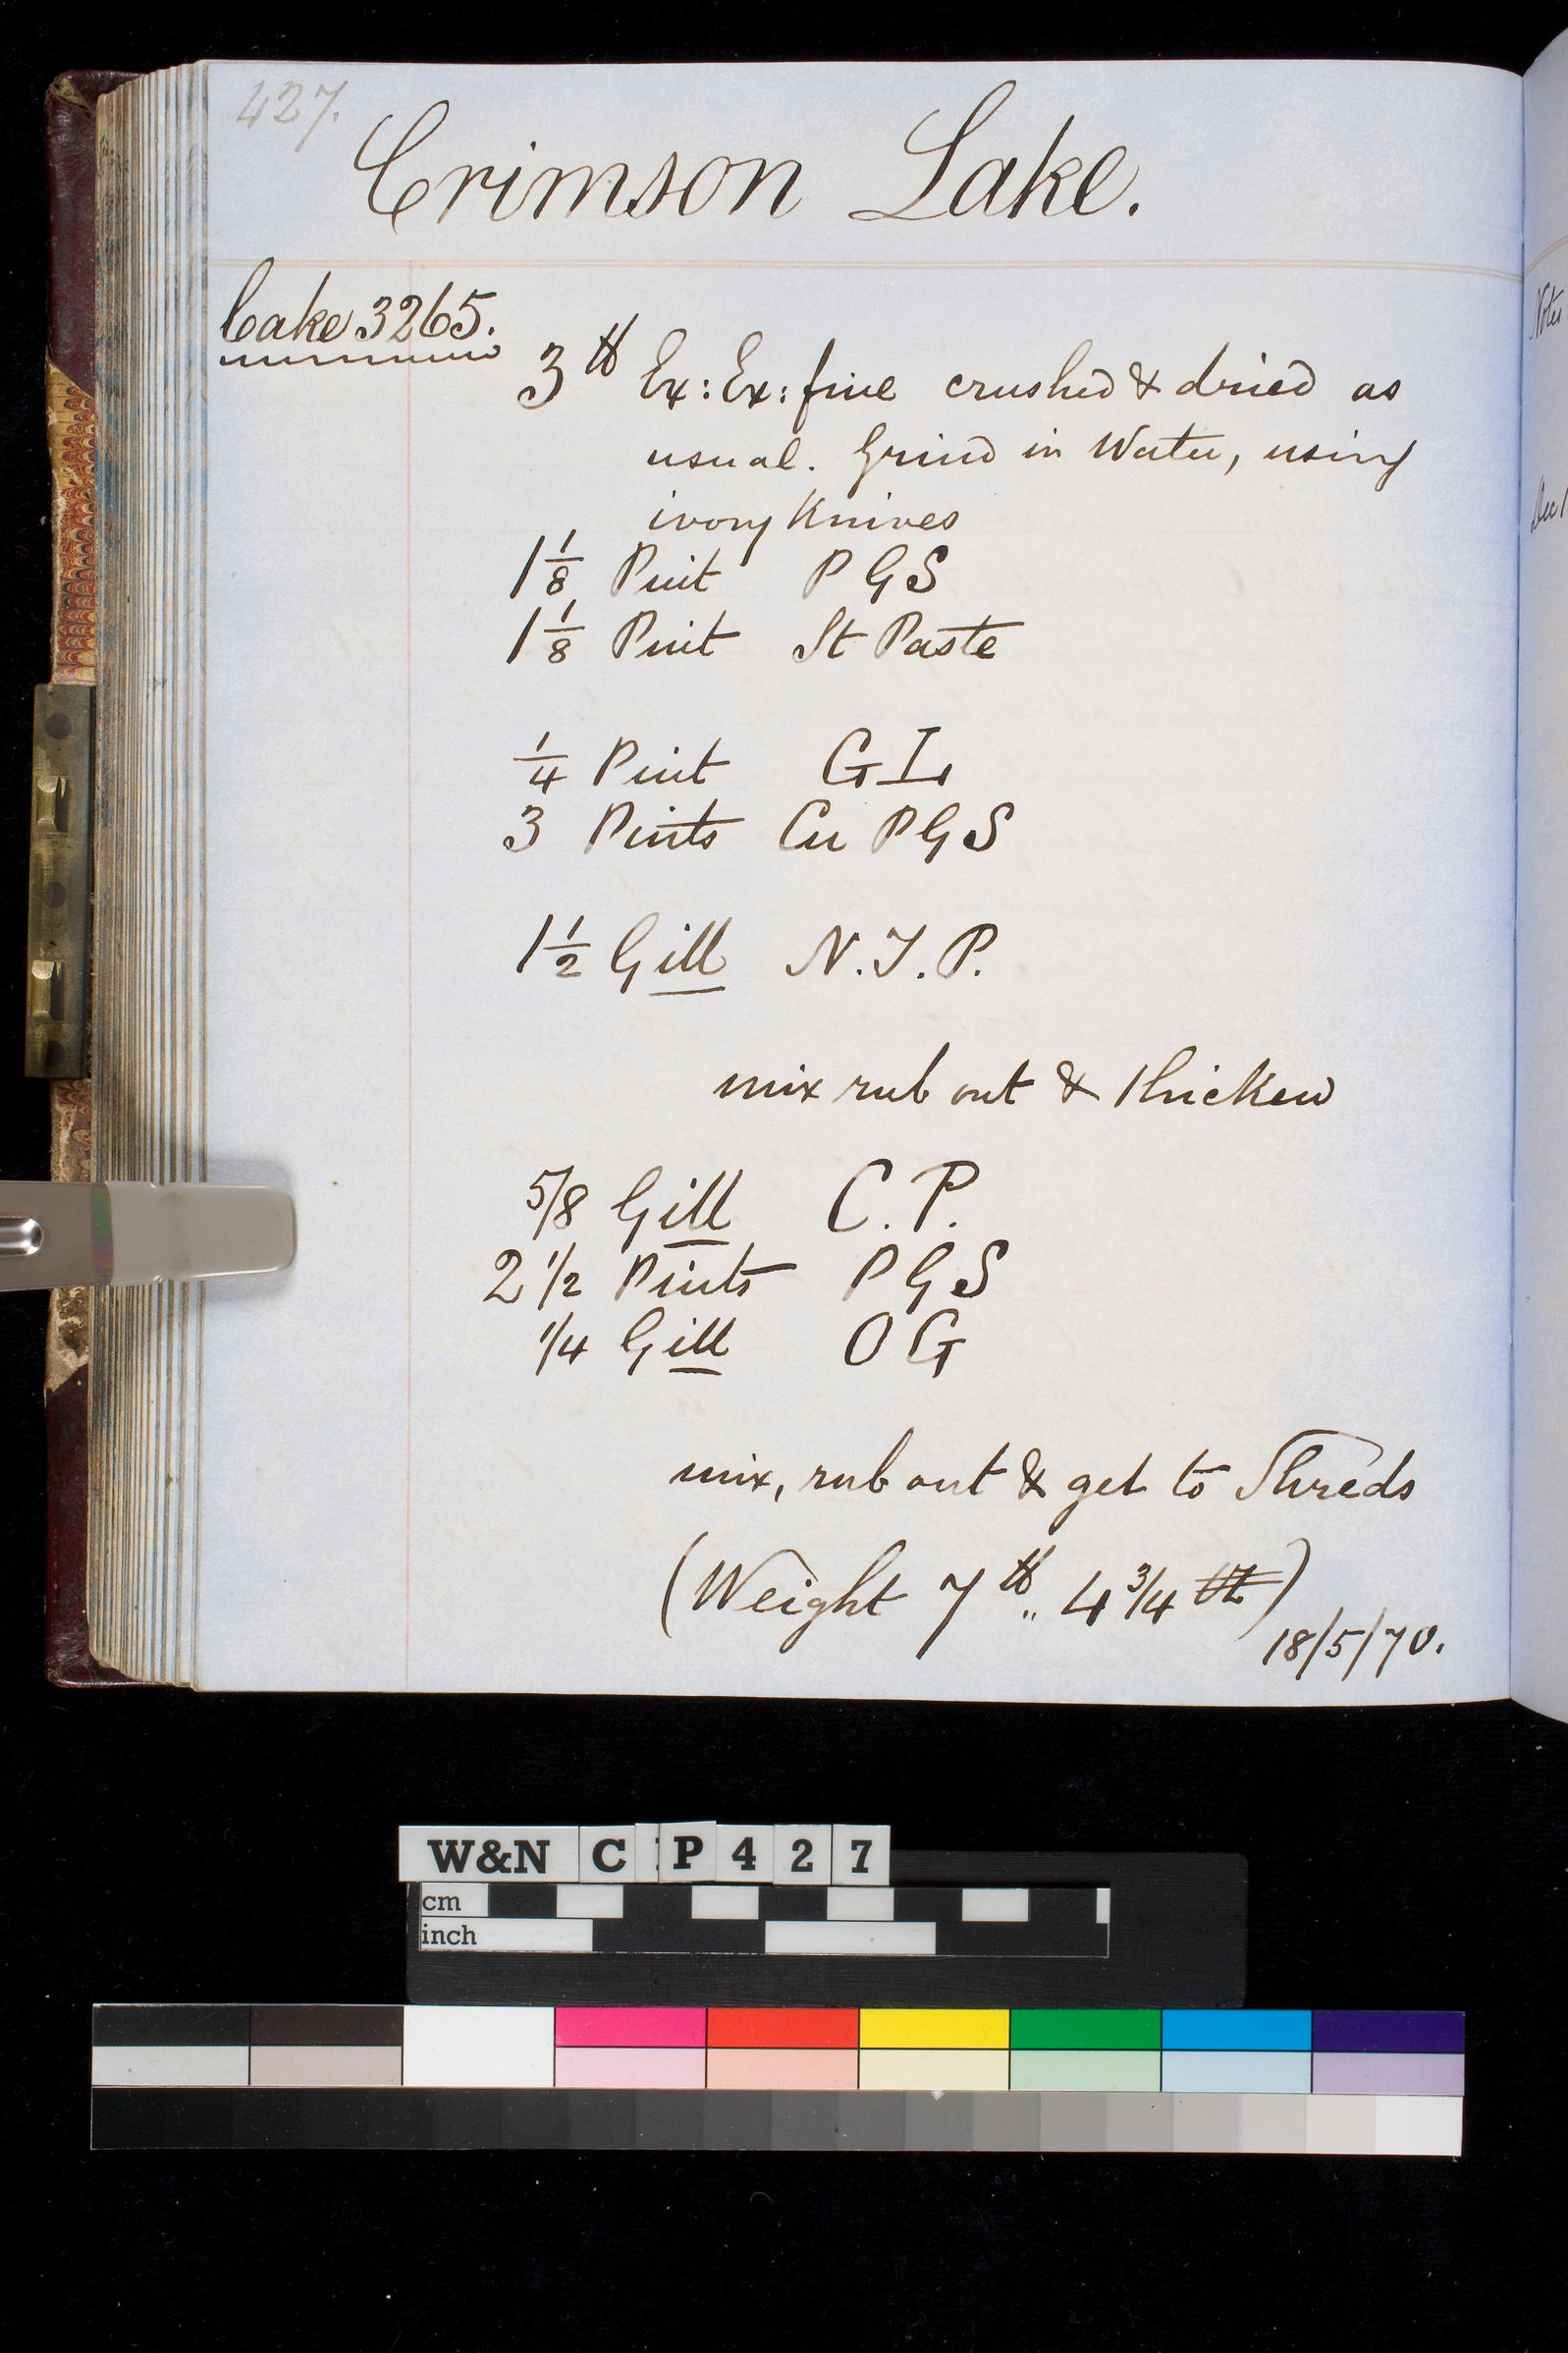 427.
Crimson Lake.
Cake 3265.
3 lb Ex: Ex: fine crushed & dried as
usual. Grind in Water, using
ivory Knives
1 1/8 Pint P G S
1 1/8 Pint St Paste
1/4 Pint G I.
3 Pints Cu P G S
1 1/2 Gill N. I. P.
mix rub out & thicken
5/8 Gill C. P.
2 1/2 Pints P G S
1/4 Gill O G
mix, rub out & get to Shreds
(Weight 7 lb .. 4 3/4 oz)
18/5/70.
Notes
Dec 1
W&N C P 4 2 7
cm
inch